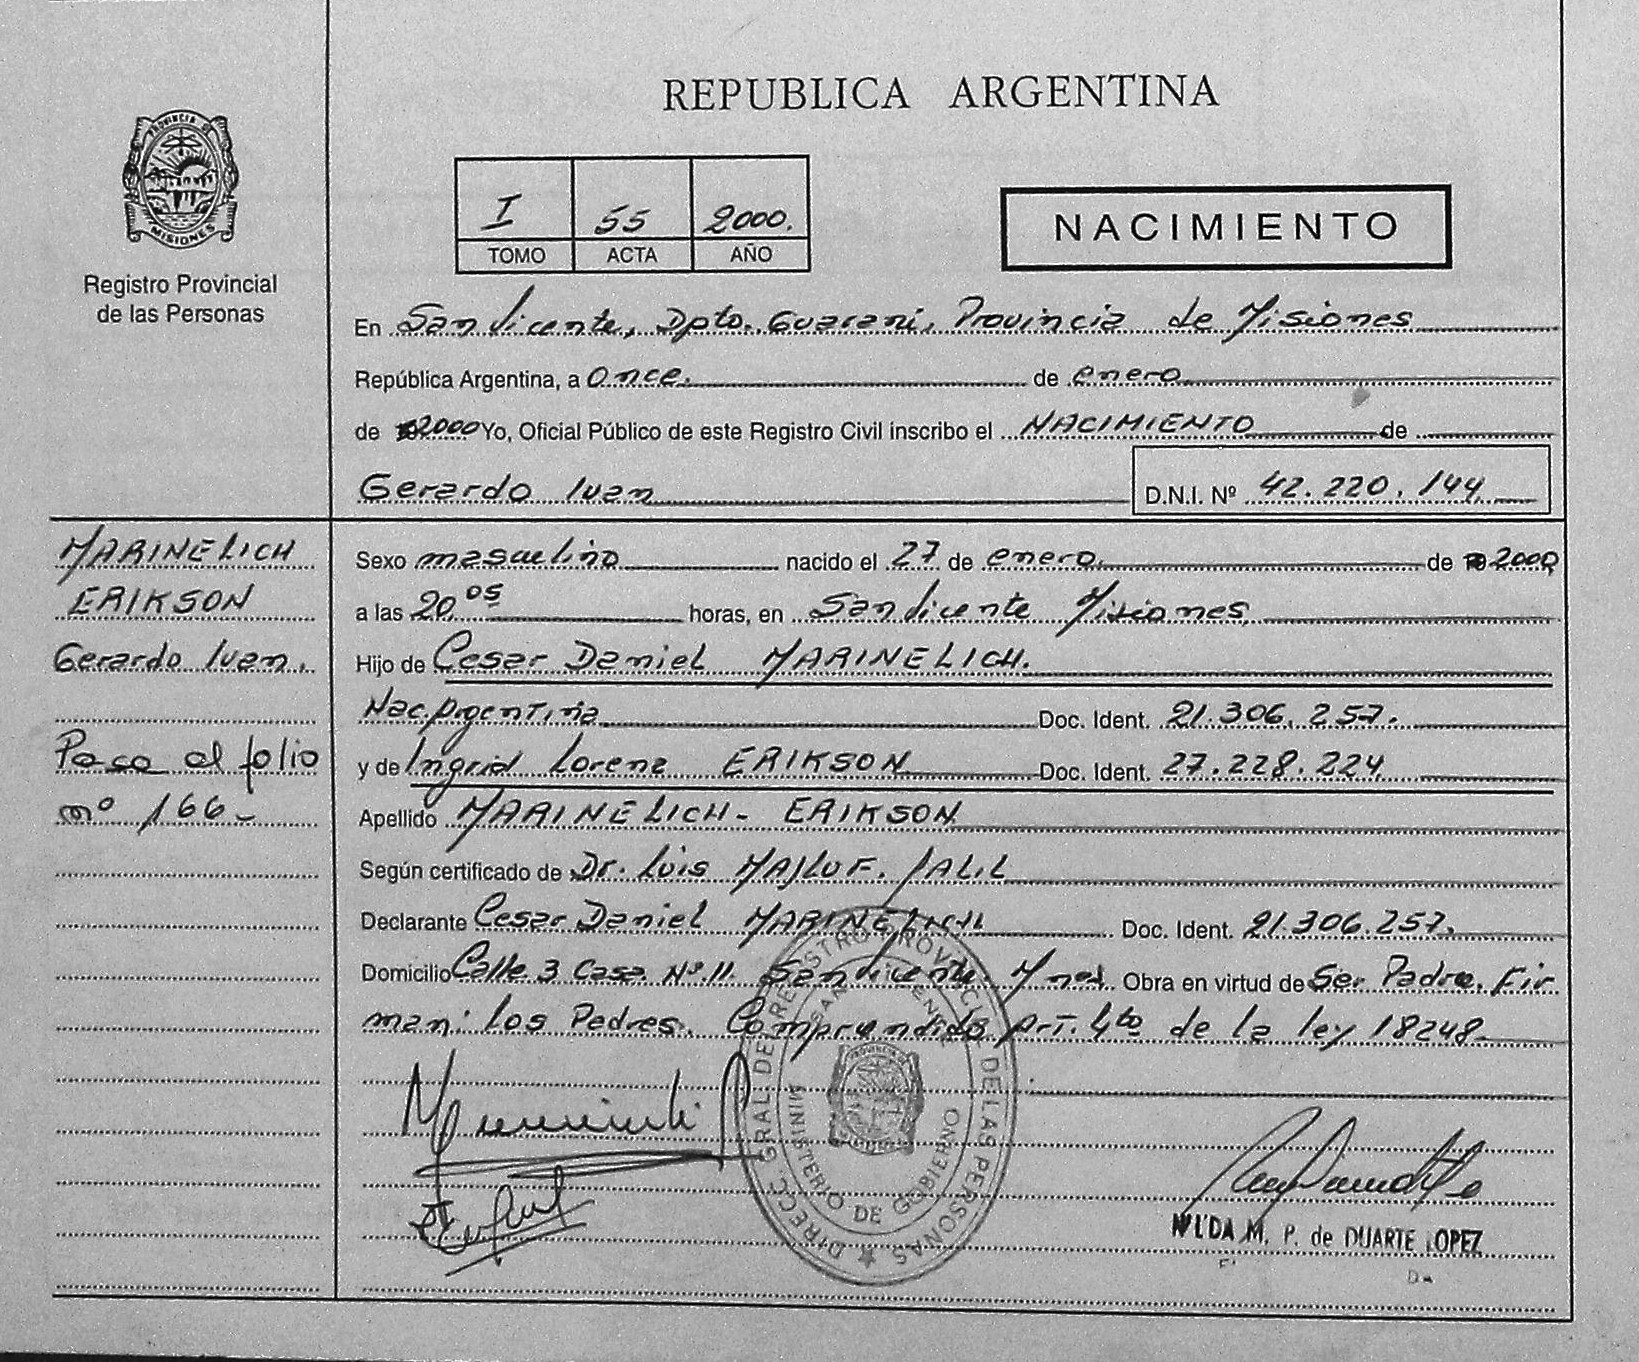 REPUBLICA ARGENTINA
PROVINCIA DE
MISIONES
Registro Provincial
de las Personas
I 55 2000.
TOMO ACTA AÑO
NACIMIENTO
En San Vicente, Dpto. Guarani, Provincia de Misiones
República Argentina, a once. de enero
de 2000 Yo, Oficial Público de este Registro Civil inscribo el NACIMIENTO de
Gerardo Ivan D.N.I. Nº 42.220.144
MARINELICH
ERIKSON
Gerardo Ivan.
Pasa al folio
nº 166-
Sexo masculino nacido el 27 de enero de 2000
a las 20,05 horas, en San Vicente Misiones
Hijo de Cesar Daniel MARINELICH.
Nac. Argentina Doc. Ident. 21.306.257.
y de Ingrid Lorena ERIKSON Doc. Ident. 27.228.224
Apellido MARINELICH - ERIKSON
Según certificado de Dr. Luis MAJLUF. JALIL
Declarante Cesar Daniel MARINELICH Doc. Ident. 21.306.257.
Domicilio Calle 3 Casa Nº 11. San Vicente. Mnes Obra en virtud de Ser Padre. Fir
man: los Padres. Comprendido Art. 4to de la ley 18248.
DIRECC. GRAL DEL REGISTRO PROVINCIAL DE LAS PERSONAS
SAN VICENTE
MINISTERIO DE GOBIERNO
NILDA M. P. de DUARTE LOPEZ